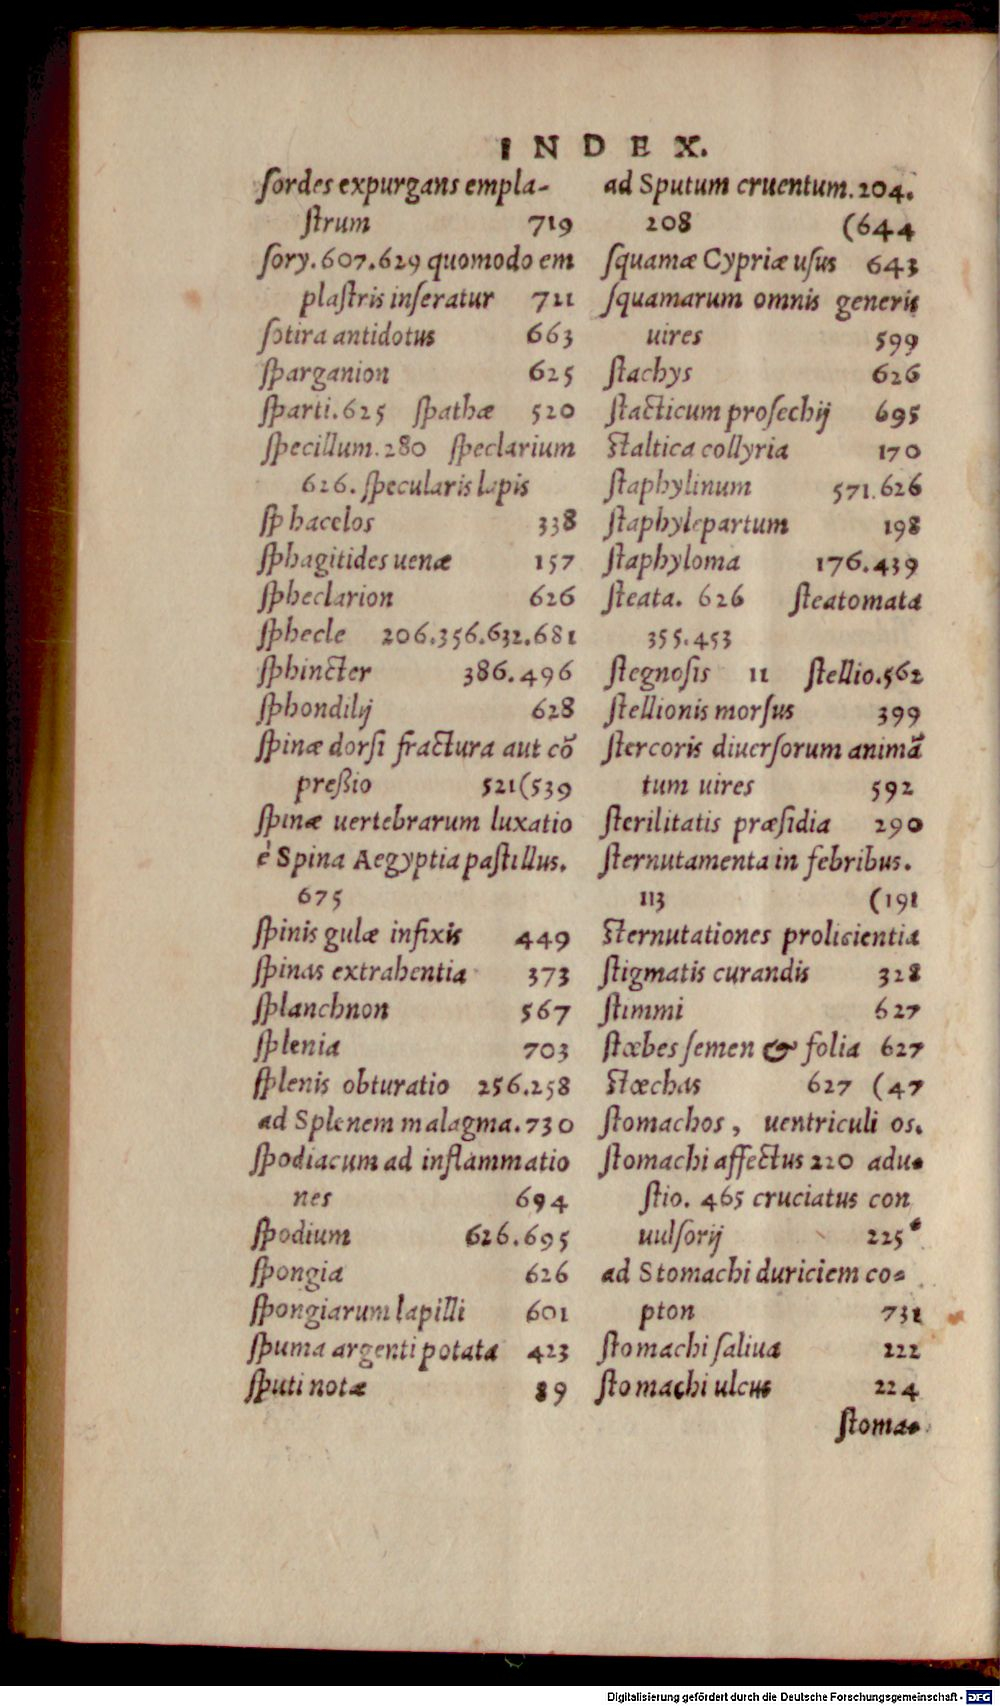 INDEX.
sordes expurgans empla-
strum 719
sory.607.629 quomodo em
plastris inseratur 711
sotira antidotus 663
sparganion 625
sparti.625 spathæ 520
specillum.280 speclarium
626. specularis lapis
sphacelos 338
sphagitides uenæ 157
spheclarion 626
sphecle 206.356.632.681
sphincter 386.496
sphondilij 628
spinæ dorsi fractura aut cõ
preßio 521(539
spinæ uertebrarum luxatio
è Spina Aegyptia pastillus.
675
spinis gulæ infixis 449
spinas extrahentia 373
splanchnon 567
splenia 703
splenis obturatio 256.258
ad Splenem malagma.730
spodiacum ad inflammatio
nes 694
spodium 626.695
spongia 626
spongiarum lapilli 601
spuma argenti potata 423
sputi notæ 89
ad Sputum cruentum.204.
208 (644
squamæ Cypriæ usus 643
squamarum omnis generis
uires 599
stachys 626
stacticum prosechij 695
Staltica collyria 170
staphylinum 571.626
staphylepartum 198
staphyloma 176.439
steata. 626 steatomata
355.453
stegnosis 11 stellio.562
stellionis morsus 399
stercoris diuersorum animã
tum uires 592
sterilitatis præsidia 290
sternutamenta in febribus.
113 (191
Sternutationes prolicientia
stigmatis curandis 328
stimmi 627
stœbes semen & folia 627
Stœchas 627 (47
stomachos, uentriculi os.
stomachi affectus 220 adu-
stio. 465 cruciatus con
uulsorij 225
ad Stomachi duriciem co-
pton 731
stomachi saliua 222
stomachi ulcus 224
stoma-
Digitalisierung gefördert durch die Deutsche Forschungsgemeinschaft - DFG